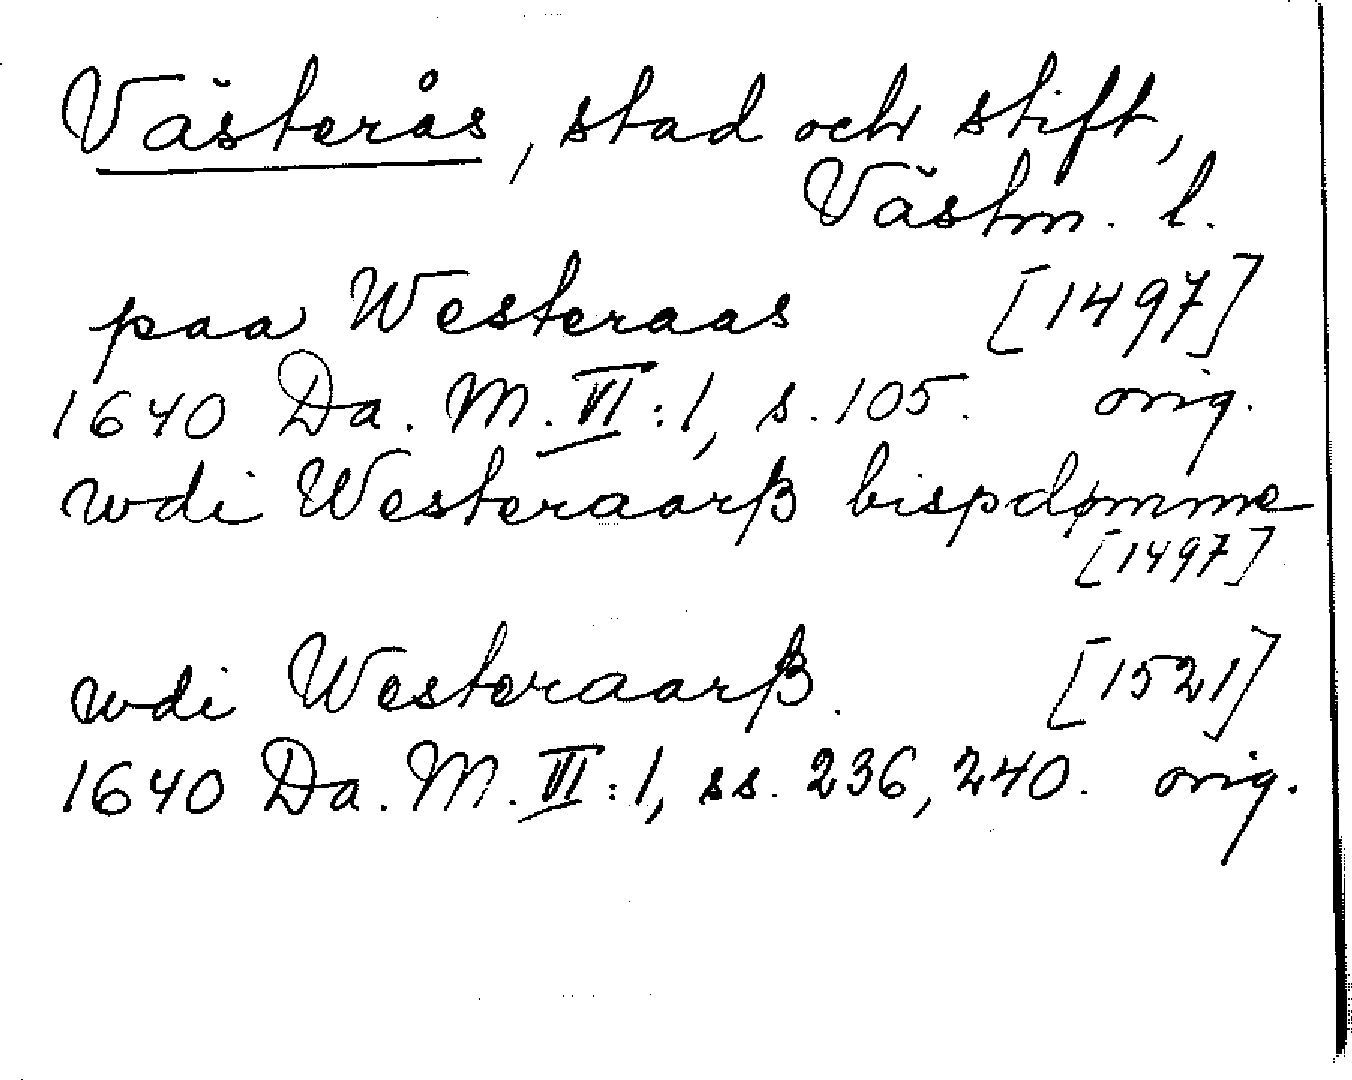 Västerås, stad och stift,
Västm. l.
paa Westeraas [1497]
1640 Da. M. VI:1, s. 105. orig.
wdi Westeraarß bispdømme
[1497]
wdi Westeraarß. [1521]
1640 Da. M. VI:1, ss. 236, 240. orig.